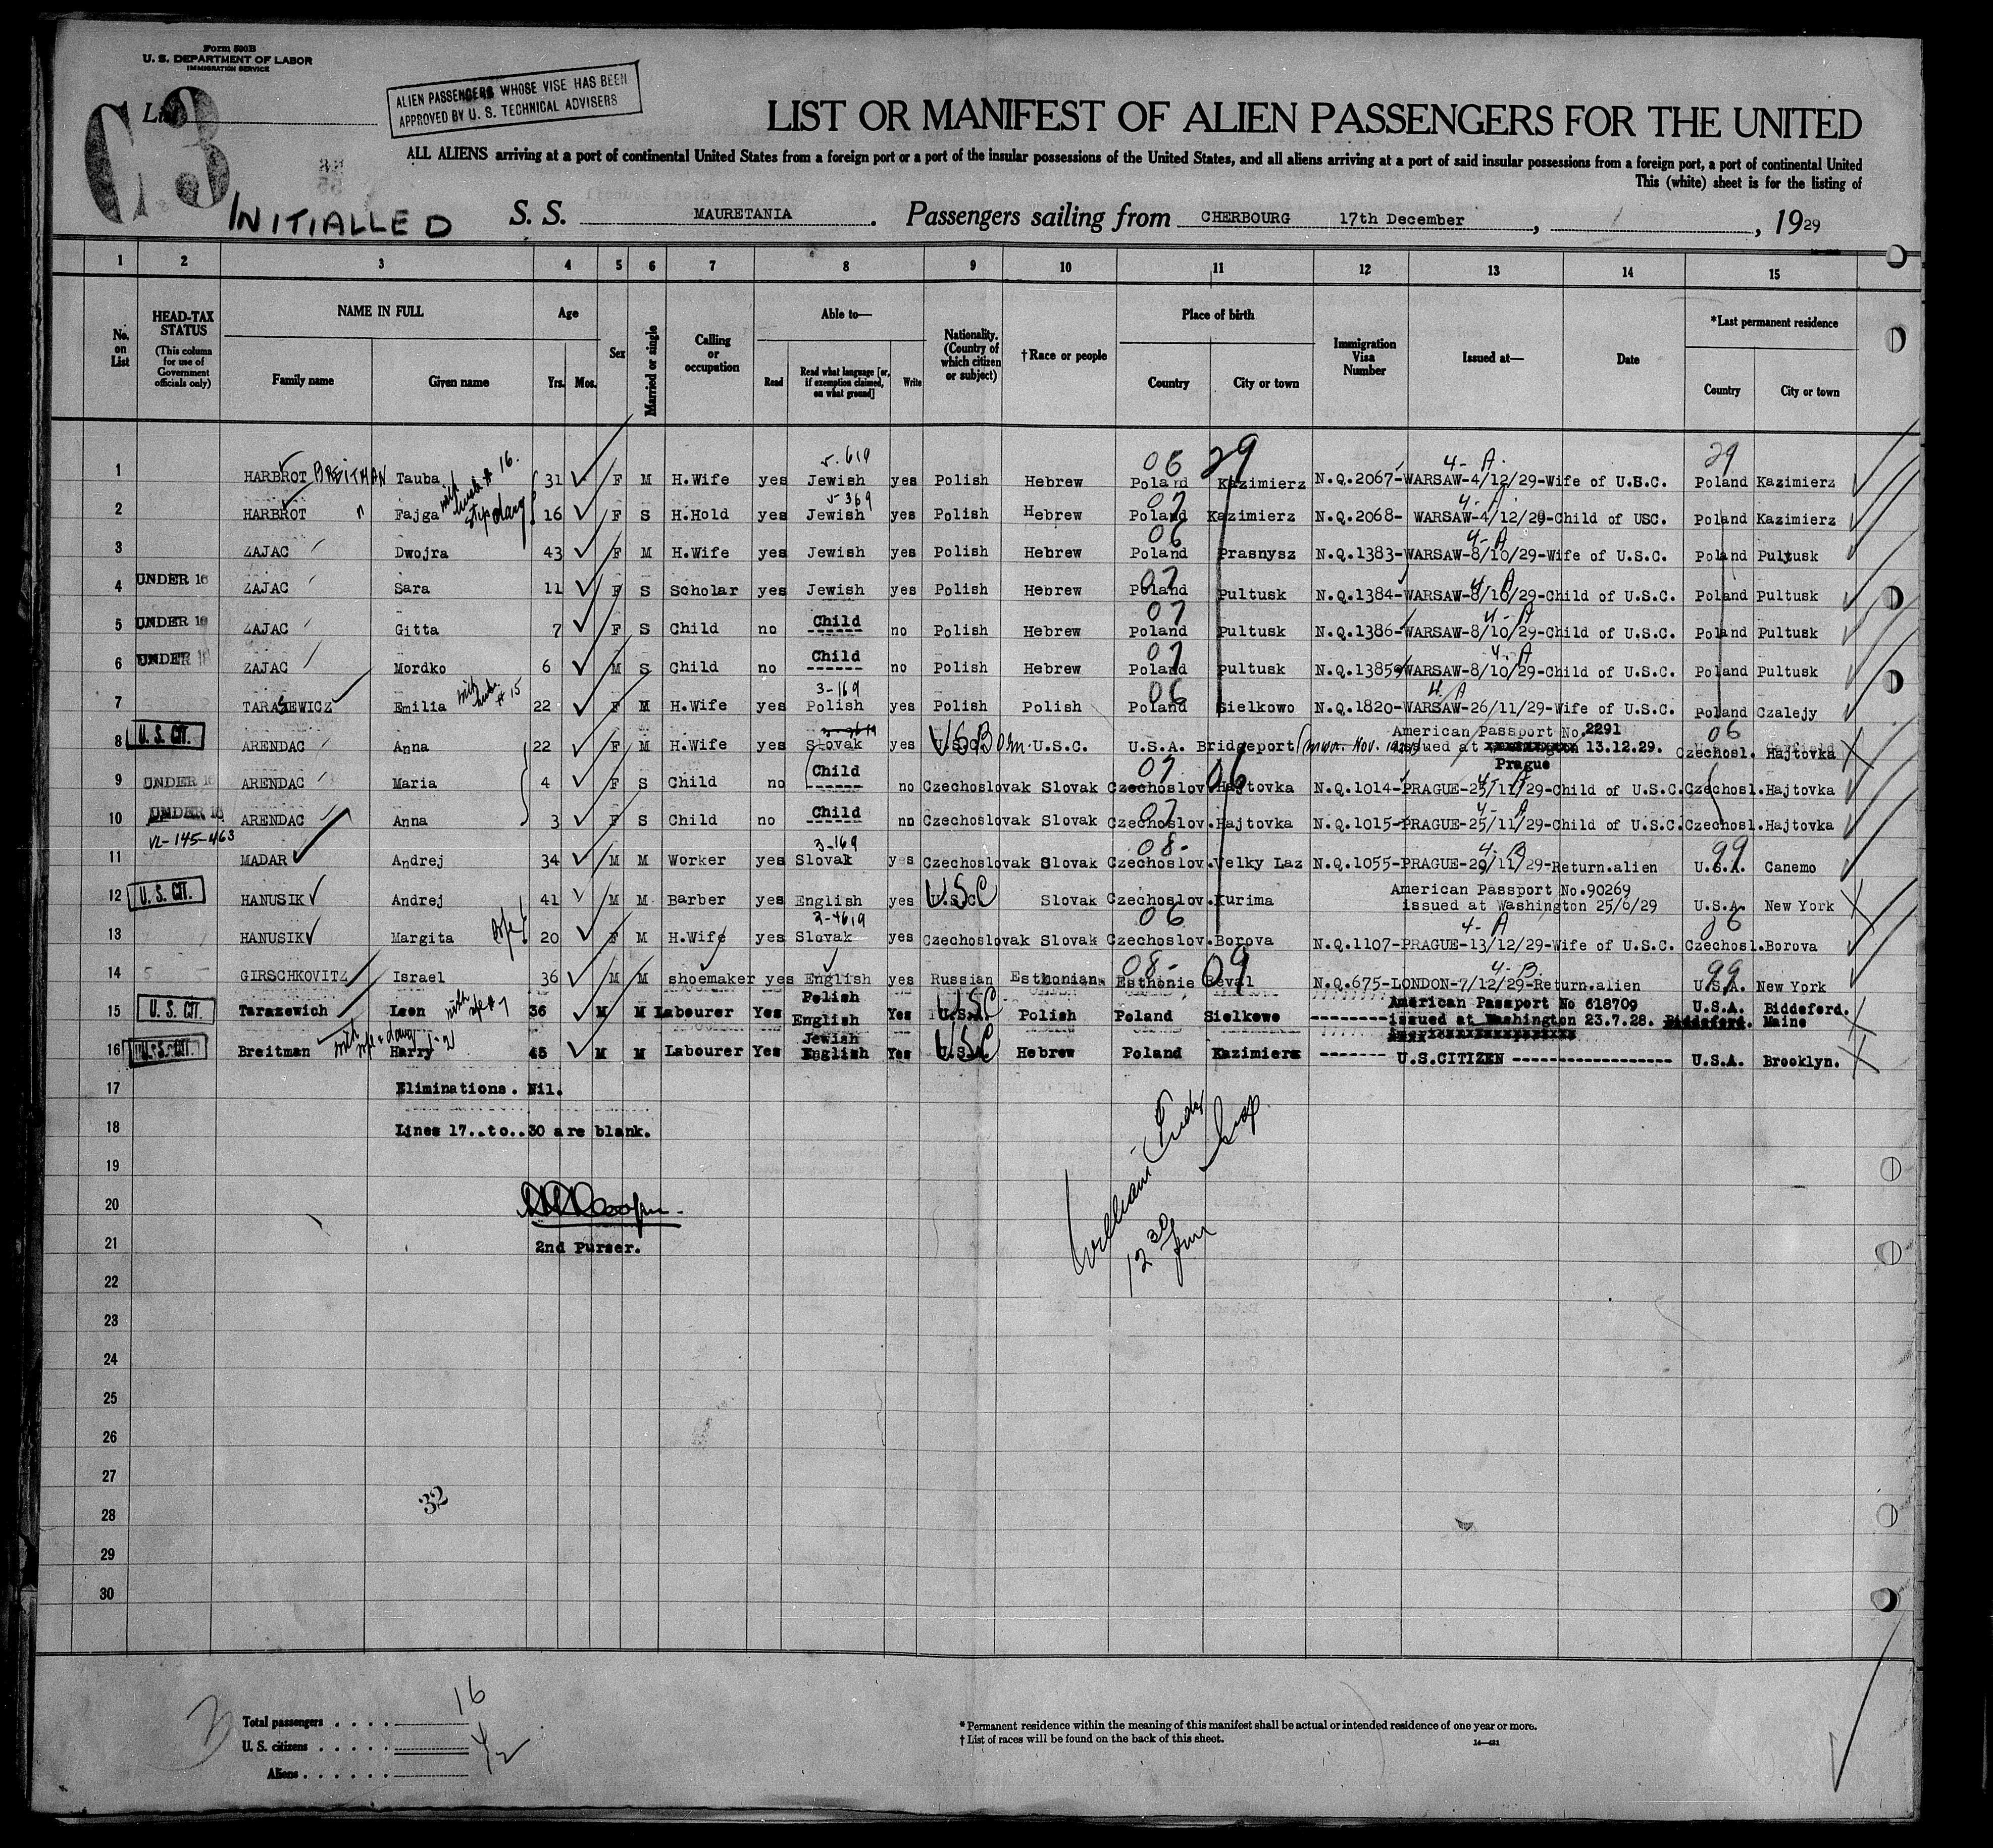 Form 500B
U. S. DEPARTMENT OF LABOR
IMMIGRATION SERVICE
List
C3
ALIEN PASSENGERS WHOSE VISE HAS BEEN
APPROVED BY U. S. TECHNICAL ADVISERS
LIST OR MANIFEST OF ALIEN PASSENGERS FOR THE UNITED
ALL ALIENS arriving at a port of continental United States from a foreign port or a port of the insular possessions of the United States, and all aliens arriving at a port of said insular possessions from a foreign port, a port of continental United
This (white) sheet is for the listing of
INITIALLED
S. S. MAURETANIA . Passengers sailing from CHERBOURG 17th December , , 1929
1 2 3 4 5 6 7 8 9 10 11 12 13 14 15
No. on List
HEAD-TAX STATUS (This column for use of Government officials only)
NAME IN FULL Family name Given name
Age Yrs. Mos.
Sex
Married or single
Calling or occupation
Able to— Read Read what language [or, if exemption claimed, on what ground] Write
Nationality. (Country of which citizen or subject)
†Race or people
Place of birth Country City or town
Immigration Visa Number
Issued at—
Date
*Last permanent residence Country City or town
1 HARBROT BREITMAN Tauba with husb # 16. 31 F M H.Wife yes Jewish yes Polish Hebrew Poland Kazimierz N.Q.2067-WARSAW-4/12/29-Wife of U.S.C. Poland Kazimierz
2 HARBROT " Fajga step daug 16 F S H.Hold yes Jewish yes Polish Hebrew Poland Kazimierz N.Q.2068- WARSAW-4/12/29-Child of USC. Poland Kazimierz
3 ZAJAC Dwojra 43 F M H.Wife yes Jewish yes Polish Hebrew Poland Prasnysz N.Q.1383-WARSAW-8/10/29-Wife of U.S.C. Poland Pultusk
4 UNDER 16 ZAJAC Sara 11 F S Scholar yes Jewish yes Polish Hebrew Poland Pultusk N.Q.1384-WARSAW-8/10/29-Child of U.S.C. Poland Pultusk
5 UNDER 16 ZAJAC Gitta 7 F S Child no Child ------ no Polish Hebrew Poland Pultusk N.Q.1386-WARSAW-8/10/29-Child of U.S.C. Poland Pultusk
6 UNDER 16 ZAJAC Mordko 6 M S Child no Child ------ no Polish Hebrew Poland Pultusk N.Q.1385-WARSAW-8/10/29-Child of U.S.C. Poland Pultusk
7 TARASEWICZ Emilia with husb. # 15 22 F M H.Wife yes 3-169 Polish yes Polish Polish Poland Sielkowo N.Q.1820-WARSAW-26/11/29-Wife of U.S.C. Poland Czalejy
8 U. S. CIT. ARENDAC Anna 22 F M H.Wife yes Slovak yes US Born U.S.C. U.S.A. Bridgeport American Passport No.2291 issued at Prague 13.12.29. Czechosl. Hajtovka
9 UNDER 16 ARENDAC Maria 4 F S Child no Child ------ no Czechoslovak Slovak Czechoslov. Hajtovka N.Q.1014-PRAGUE-25/11/29-Child of U.S.C. Czechosl. Hajtovka
10 UNDER 16 ARENDAC Anna 3 F S Child no Child ------ no Czechoslovak Slovak Czechoslov. Hajtovka N.Q.1015-PRAGUE-25/11/29-Child of U.S.C. Czechosl. Hajtovka
11 VL-145-463 MADAR Andrej 34 M M Worker yes 3-169 Slovak yes Czechoslovak Slovak Czechoslov. Velky Laz N.Q.1055-PRAGUE-29/11/29-Return.alien U.S.A. Canemo
12 U. S. CIT. HANUSIK Andrej 41 M M Barber yes English yes USC Slovak Czechoslov. Kurima American Passport No.90269 issued at Washington 25/6/29 U.S.A. New York
13 HANUSIK Margita wife 20 F M H.Wife yes 3-4619 Slovak yes Czechoslovak Slovak Czechoslov. Borova N.Q.1107-PRAGUE-13/12/29-Wife of U.S.C. Czechosl. Borova
14 GIRSCHKOVITZ Israel 36 M M shoemaker yes English yes Russian Esthonian Esthonie Reval N.Q.675-LONDON-7/12/29-Return.alien U.S.A. New York
15 U. S. CIT. Tarazewich Leon with wife # 7 36 M M Labourer Yes Polish English Yes USC Polish Poland Sielkowo --------American Passport No 618709 issued at Washington 23.7.28. U.S.A. Biddeford. Maine
16 U. S. CIT. Breitman with wife & daug 1-2 Harry 45 M M Labourer Yes Jewish English Yes USC Hebrew Poland Kazimierz ------- U.S.CITIZEN ------------------ U.S.A. Brooklyn.
17 Eliminations. Nil.
18 Lines 17..to..30 are blank.
19
20
21 2nd Purser.
William
Insp
12 30
22
23
24
25
26
27
28
32
29
30
Total passengers . . . . 16
U. S. citizens . . . . .
Aliens . . . . . .
* Permanent residence within the meaning of this manifest shall be actual or intended residence of one year or more.
† List of races will be found on the back of this sheet.